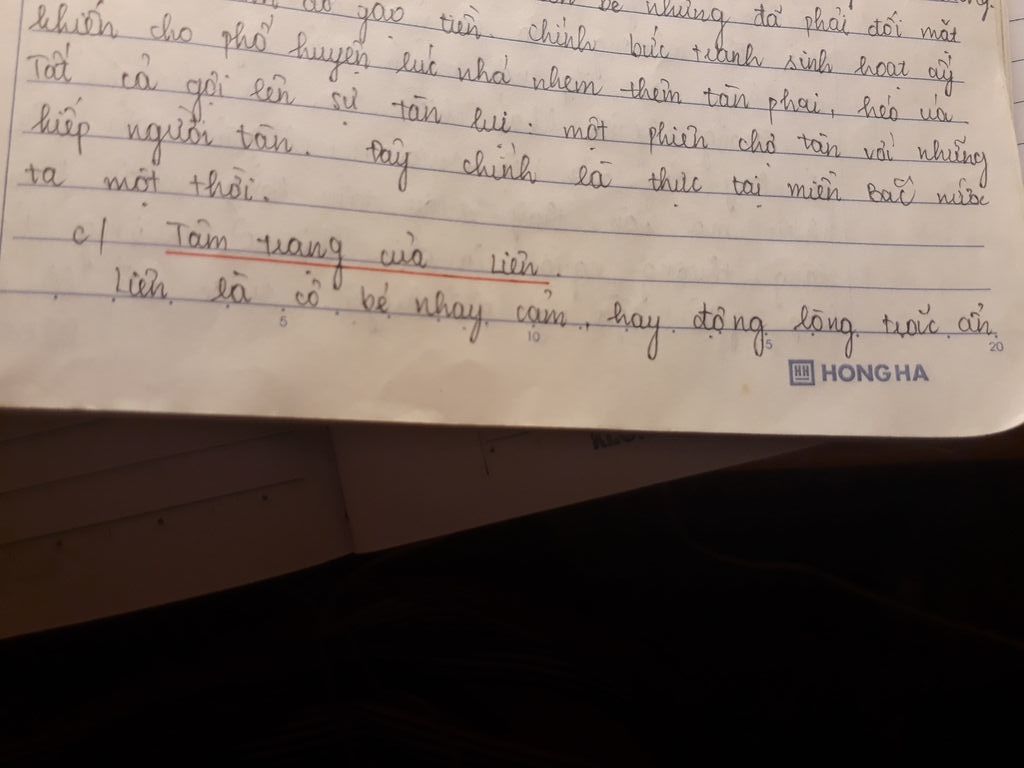 áo gạo tiền. chính bé nhưng đã phải đối mặt
khiến cho phố huyện lúc nhá nhem thêm tàn phai, héo úa
Tất cả gợi lên sự tàn lụi. một phiên chợ tàn với những
kiếp người tàn. Đây chính là thực tại miền Bắc nước
ta một thời.
c/ Tâm trạng của Liên.
Liên là cô bé nhạy cảm, hay động lòng trắc ẩn.
5 10 5 20
HH HONG HA